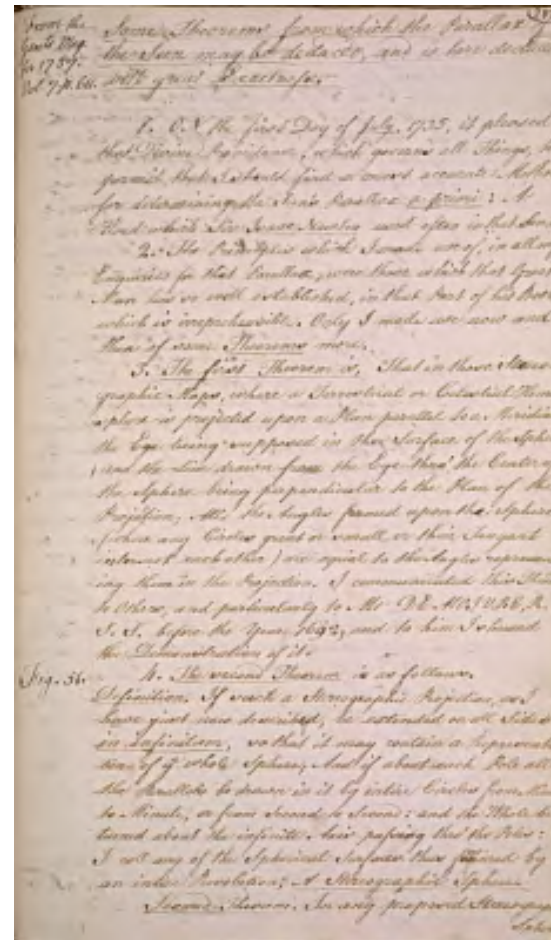 From the
Gents Mag
for 1737.
Vol. 7.
Some Theorems from which the Parallax of
the Sun may be deduced, and is here deduced
with great Exactness.
1. On the first Day of July, 1735, it pleased
that Divine Providence, which governs all Things, to
permit that I should find a most accurate Method
for determining the Sun's Parallax a priori: A
which Sir Isaac Newton used often in that Sense
2. The Principles which I made use of, in all my
Enquiries for that Parallax, were those which that Great
Man has so well established, in that Part of his Book
which is irreprehensible. Only I made use now and
then of some Theorems more.
3. The first Theorem is, That in those Stereo-
graphic Maps, where a Terrestrial or Celestial Hemi-
sphere is projected upon a Plan parallel to a Meridian
the Eye being supposed in the Surface of the Sphere
(and the Line drawn from the Eye thro' the Center of
the Sphere being perpendicular to the Plan of the
Projection) All the Angles formed upon the Sphere
(where any Circles great or small or their Tangents
intersect each other) are equal to the Angles represent-
ing them in the Projection. I communicated this
to others, and particularly to Mr DE MOIVRE, R.
S. S. before the Year, 1692, and to him I shewed
the Demonstration of it.
Fig. 56.
4. The second Theorem is as follows.
Definition. If such a Stereographic Projection, as I
have just now described, be extended on all Sides
in Infinitum, so that it may contain a Representa-
tion of ye whole Sphere; And if about each Pole all
the Parallels be drawn in it by intire Circles from Minute
to Minute, or from Second to Second: and the Whole be
turned about the infinite Axis passing thro' the Poles:
I call any of the Spherical Surfaces thus formed by
an intire Revolution; A Stereographic Sphere.
Second Theorem. In any proposed Stereographic
Sphere